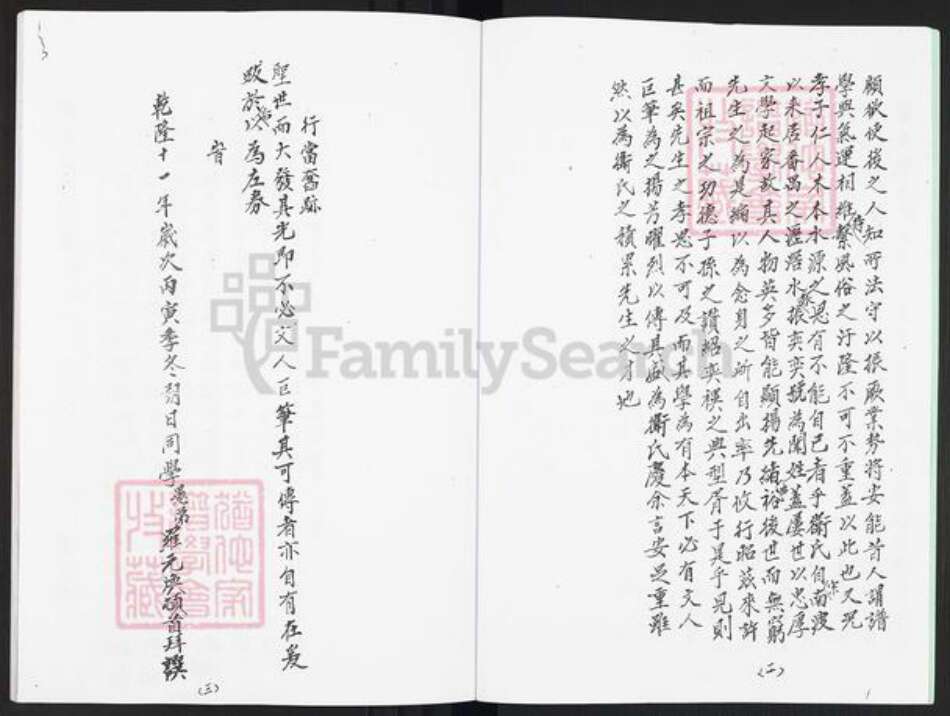 願欲使後之人知所法守以振厥業勢將安能昔人謂譜
學與氣運相維繫風俗之汙隆不可不重蓋以此也又況
孝子仁人木本水源之思有不能自已者乎衞氏自南渡
以來居番禺之瀝滘水振奕奕號為閥姓蓋屢世以忠厚
文學起家故其人物英多皆能顯揚先緒裕後世而無窮
先生之為是編以為愈身之所自出率乃攸行昭茲來許
而祖宗之功德子孫之讚紹奕禩之典型胥于是乎見則
甚矣先生之孝思不可及而其學為有本天下必有文人
巨筆為之揚芳曜烈以傳其盛為衞氏慶余言安足重雖
然以為衞氏之積累先生之身地
(二)
行當奮跡
聖世而大發其光即不必文人巨筆其可傳者亦自有在爰
跋於後以為左券
旹
乾隆十一年歲次丙寅季冬朔日同學愚弟羅元煥頓首拜譔
(三)
FamilySearch